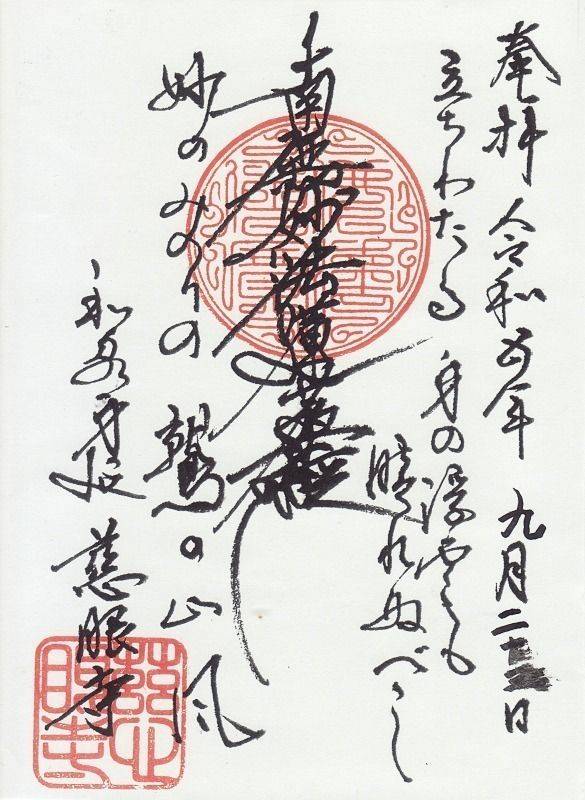 奉拝 令和五年 九月二十 日
立ちわたる 身の浮雲も
晴れぬべし
南無妙法蓮華経
妙のみのりの 鷲の山風
和泉身延 慈眼寺